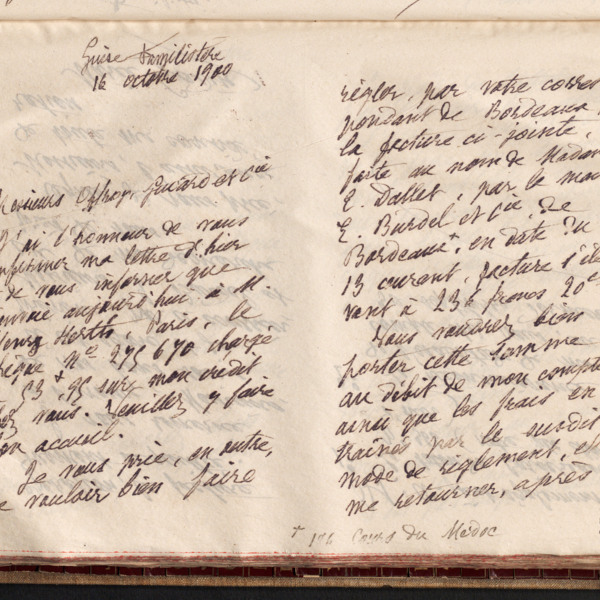 Guise Familistère
16 octobre 1900
Messieurs Offroy, Guiard et Cie
J'ai l'honneur de vous
confirmer ma lettre d'hier
et de vous informer que
j'envoie aujourd'hui à M.
Henry Hertz, Paris, le
chèque N° 275 670 chargé
53 +, 95 sur mon crédit
chez vous. Veuillez y faire
bon accueil.
Je vous prie, en outre,
de vouloir bien faire
régler, par votre corres
pondant de Bordeaux,
la facture ci-jointe,
faite au nom de Madame
E. Dallet, par la mai
E. Burdel et Cie, de
Bordeaux +, en date du
13 courant, facture s'éle
vant à 236 francs 20 c
Vous voudrez bien
porter cette somme
au débit de mon compte
ainsi que les frais en
traînés par le susdit
mode de règlement, et
me retourner, après
+ 126 Cours du Médoc